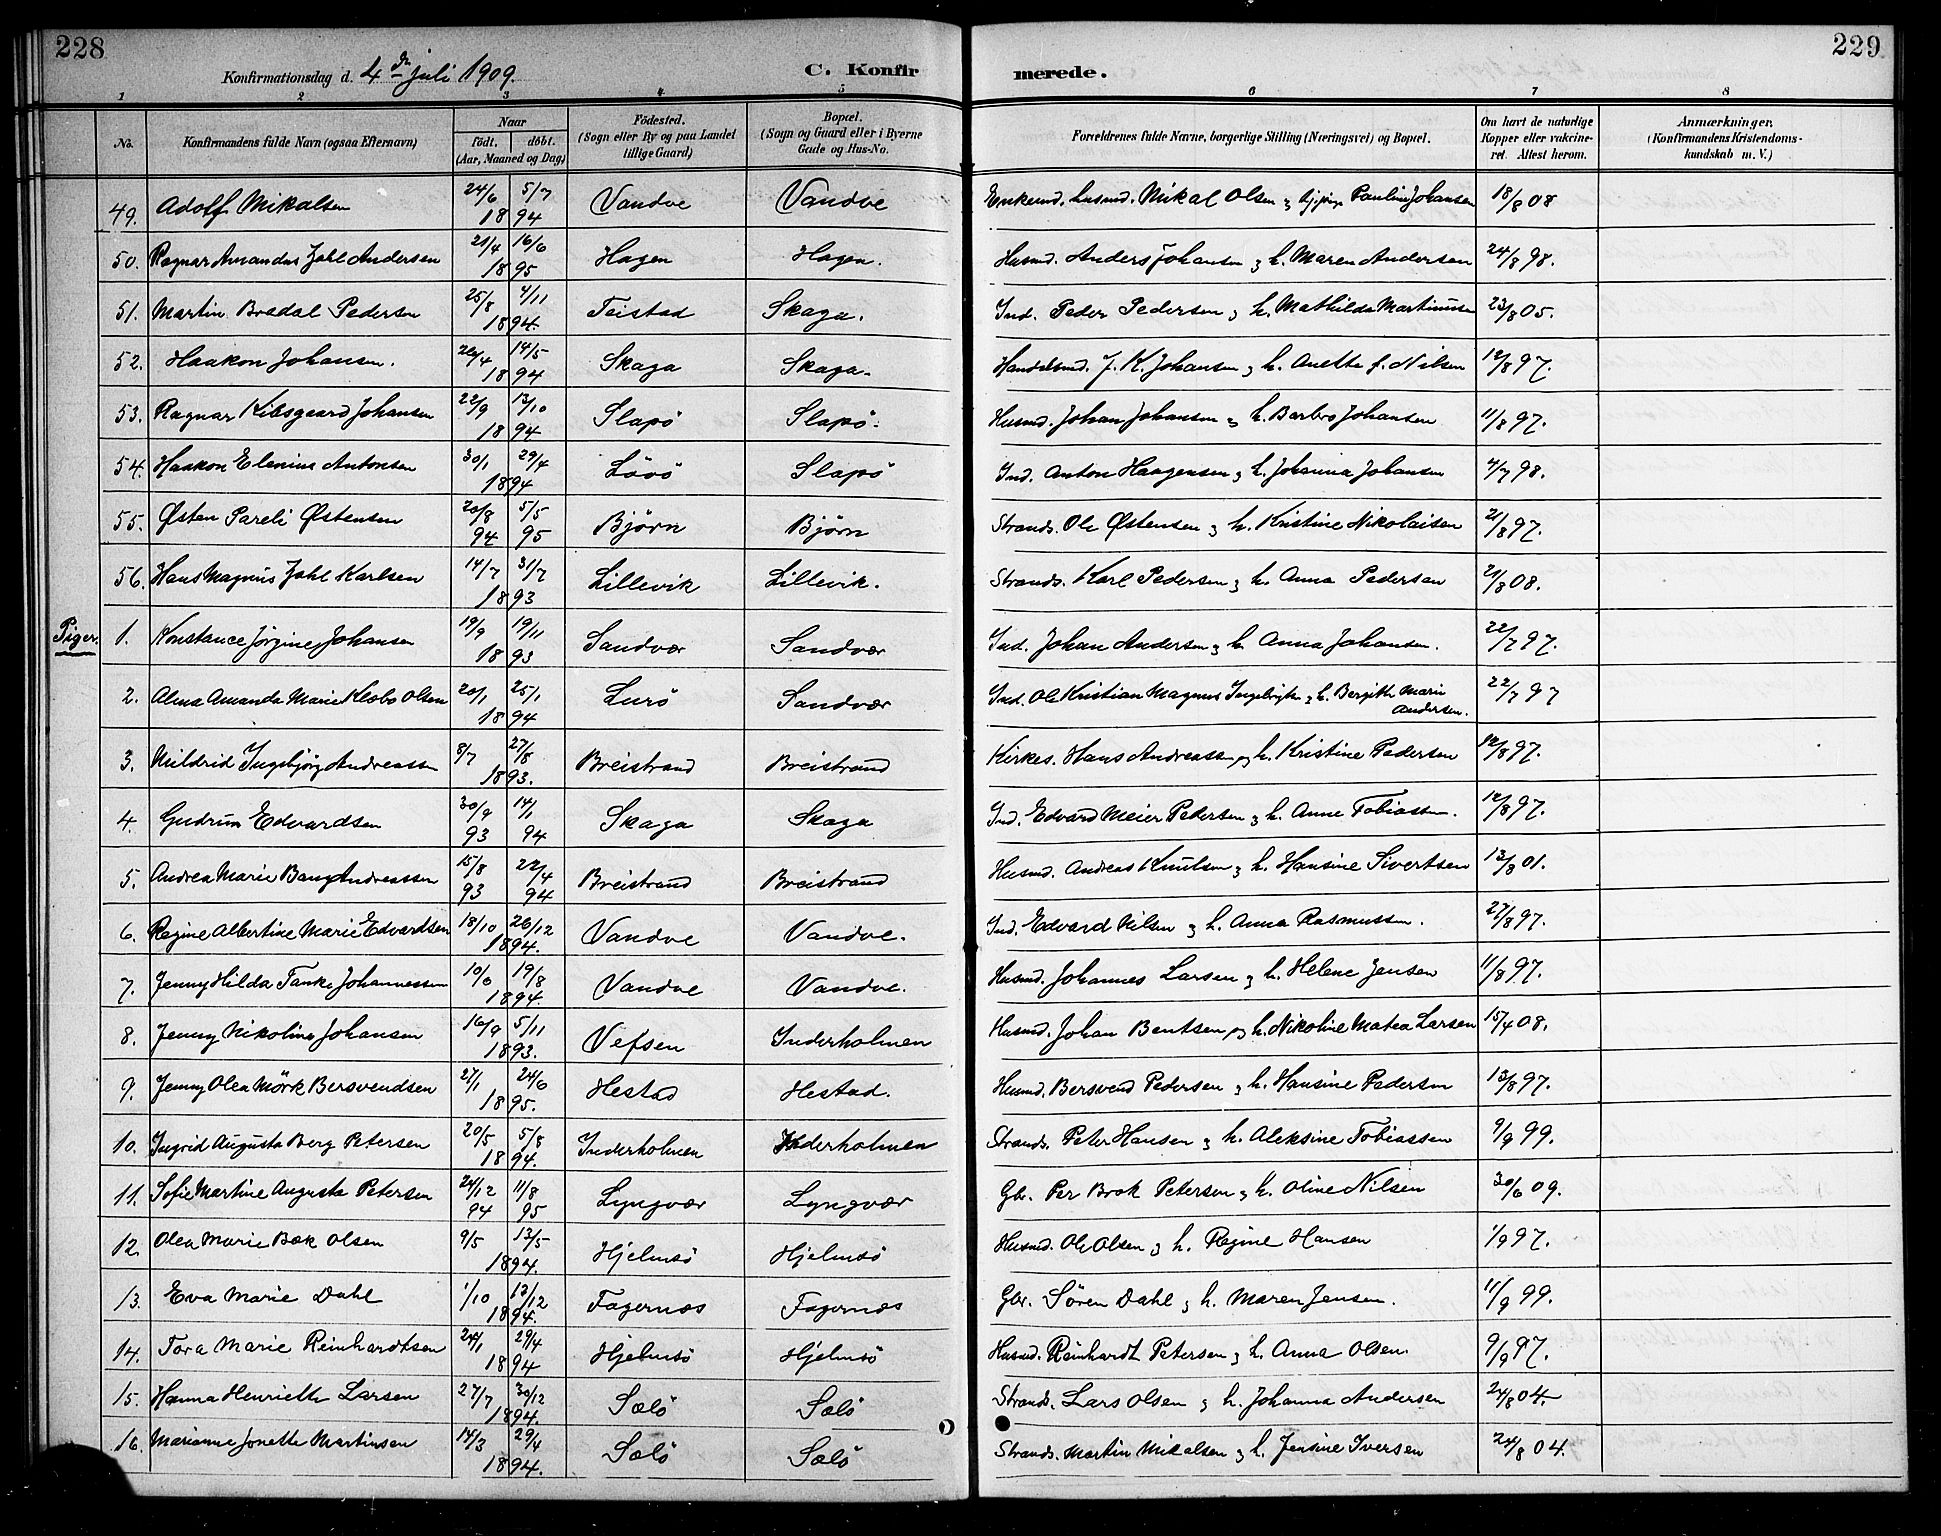 228
229
Konfirmationsdag d. 4de juli 1909.
C. Konfirmerede.
1 2 3 4 5 6 7 8
No. Konfirmandens fulde Navn (ogsaa Efternavn) Naar født, døbt. (Aar, Maaned og Dag) Fødested. (Sogn eller By og paa Landet tillige Gaard) Bopæl. (Sogn og Gaard eller i Byerne Gade og Hus-No. Forældrenes fulde Navne, borgerlige Stilling (Næringsvei) og Bopæl. Om havt de naturlige Kopper eller vakcineret. Attest herom. Anmærkninger, (Konfirmandens Kristendomskundskab m. V.)
49. Adolf Mikalsen 24/6 5/7 1894 Vandve Vandve Enkemd. Husmd. Mikal Olsen Pauline Johansen 18/8 08
50. Ragnar Amandus Johl Andersen 21/4 16/6 1895 Hagen Hagen. Husmd. Anders Johansen og h. Maren Andersen 24/8 98.
51. Martin Bredal Pedersen 25/8 4/11 1894. Teistad Skaga. Ind. Peder Pedersen og h. Mathilda Martinussen 23/8 05.
52. Haakon Johansen. 26/4 14/5 1894 Skaga Skaga. Handelsmd. J. K. Johansen og h. Anetta f. Nilsen 12/8 97.
53. Ragnar Kibsgaard Johansen 22/9 13/10 1894 Slapö Slapö. Husmd. Johan Johansen og h. Barbro Johansen 11/8 97.
54. Haakon Elenius Antonsen 30/1 29/4 1894 Lövö Slapö Ind. Anton Haagensen og h. Johanna Johansen 4/7 98.
55. Østen Pareli Østensen 20/8 94 5/5 95 Björn Björn Strands. Ole Østensen og h. Kristine Nikolaisen 21/8 97.
56. Hans Magnus Johl Karlsen 14/7 31/7 1893 Lillevik Lillevik. Strands. Karl Pedersen og h. Anna Pedersen 21/8 08.
Piger. 1. Konstance Jørgine Johansen 19/9 19/11 1893 Sandvær Sandvær Ind. Johan Andersen og h. Anna Johansen. 22/7 97.
2. Alma Amanda Marie Klæbo Olsen 20/1 25/1 1894 Lurö Sandvær Ind. Ole Kristian Magnus Ingebrigts. og h. Bergitte Marie Andersen. 22/7 97
3. Mildrid Ingebjørg Andreassen 8/7 27/8 1893. Breistrand Breistrand Kirkes. Hans Andreassen og h. Kristine Pedersen 12/8 97.
4. Gudrun Edvardsen 30/9 93 14/1 94 Skaga Skaga Ind. Edvard Meier Pedersen og h. Anne Tobiassen. 12/8 97.
5. Andrea Marie Bang Andreassen 15/8 93 22/4 94 Breistrand Breistrand Husmd. Andreas Knutsen og h. Hansine Sivertsen 13/8 01.
6. Regine Albertine Marie Edvardsen 18/10 26/12 1894. Vandve Vandve. Ind. Edvard Nilsen og h. Anna Rasmussen. 27/8 97.
7. Jenny Hilda Tanke Johannessen 10/6 19/8 1894. Vandve Vandve. Husmd. Johannes Larsen og h. Helene Jensen 11/8 97.
8. Jenny Nikoline Johansen 16/9 5/11 1893. Vefsen Inderholmen Husmd. Johan Bentsen og h. Nikoline Matea Larsen 15/4 08.
9. Jenny Olea Mörk Bersvendsen 27/1 24/6 1895. Hestad Hestad. Husmd. Bersvend Pedersen og h. Hansine Pedersen 13/8 97.
10. Ingrid Augusta Berg Petersen 20/5 5/8 1894. Inderholmen Inderholmen Strands. Peter Hansen og h. Aleksine Tobiassen 9/9 99.
11. Sofie Martine Augusta Petersen 24/12 94 11/8 95 Lyngvær Lyngvær Gbr. Per Brok Petersen og h. Oline Nilsen 30/6 09.
12. Olea Marie Bæk Olsen 9/5 13/5 1894. Hjelmsö Hjelmsö Husmd. Ole Olsen og h. Regine Hansen 1/9 97.
13. Eva Marie Dahl 1/10 12/12 1894. Fagernæs Fagernæs Gbr. Sören Dahl og h. Maren Jensen. 11/9 99.
14. Tora Marie Reinhardtsen 24/1 29/4 1894 Hjelmsö Hjelmsö Husmd. Reinhardt Petersen og h. Anna Olsen. 9/9 97.
15. Hanna Henriette Larsen 27/7 30/12 1894. Sælö Sælö Strands. Lars Olsen og h. Johanna Andersen 24/8 04.
16. Marianne Jonette Martinsen 14/3 29/4 1894. Sælö Sælö Strands. Martin Mikalsen og h. Jensine Iversen 24/8 04.